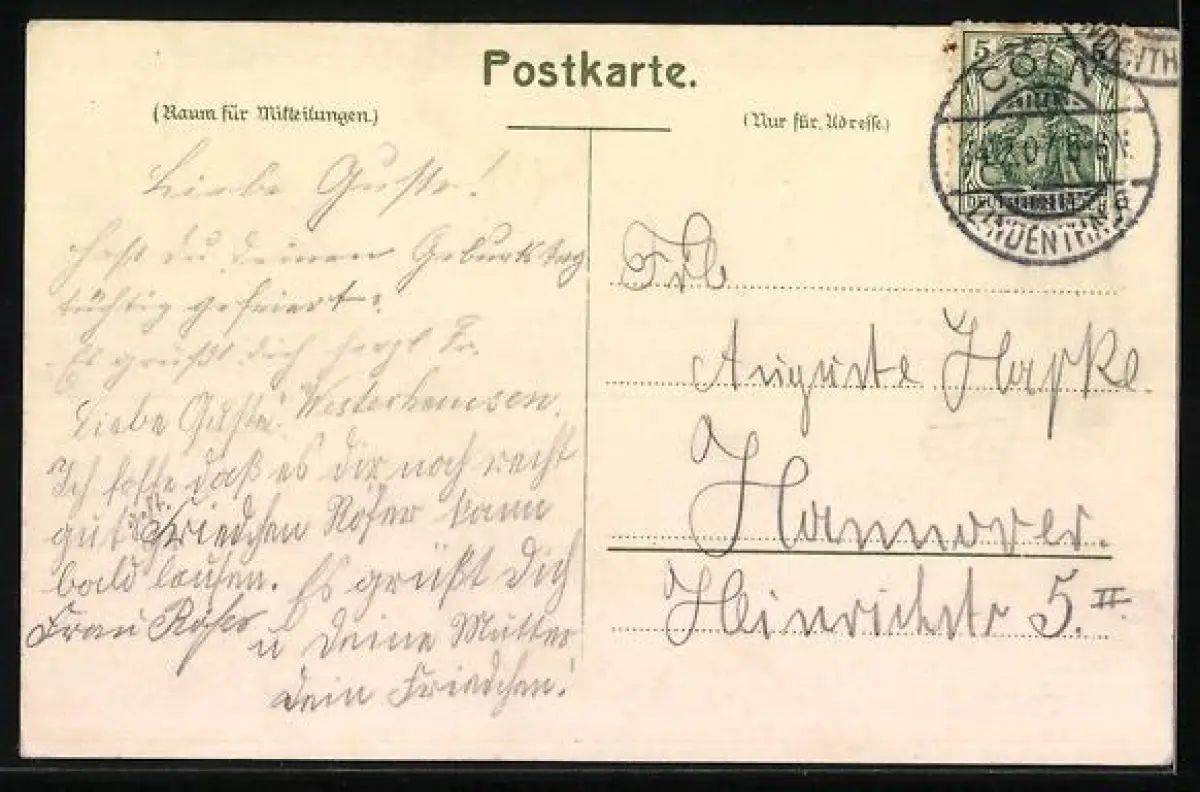 Postkarte.
(Raum für Mitteilungen.)
(Nur für Adresse.)
5 5
CÖLN
7.07. 5-6N.
LINDENTHAL
DEUTSCHES REICH
Liebe Guste!
Hast du deinen Geburtstag
tüchtig gefeiert?
Es grüßt dich herzl Fr.
Westerhausen.
Liebe Guste!
Ich hoffe daß es dir noch recht
gut geht. Friedchen Röser kann
bald laufen. Es grüßt Dich
Frau Röser u deine Mutter
dein Friedchen!
Frl
Auguste Hapke
Hannover.
Heinrichstr 5. II.